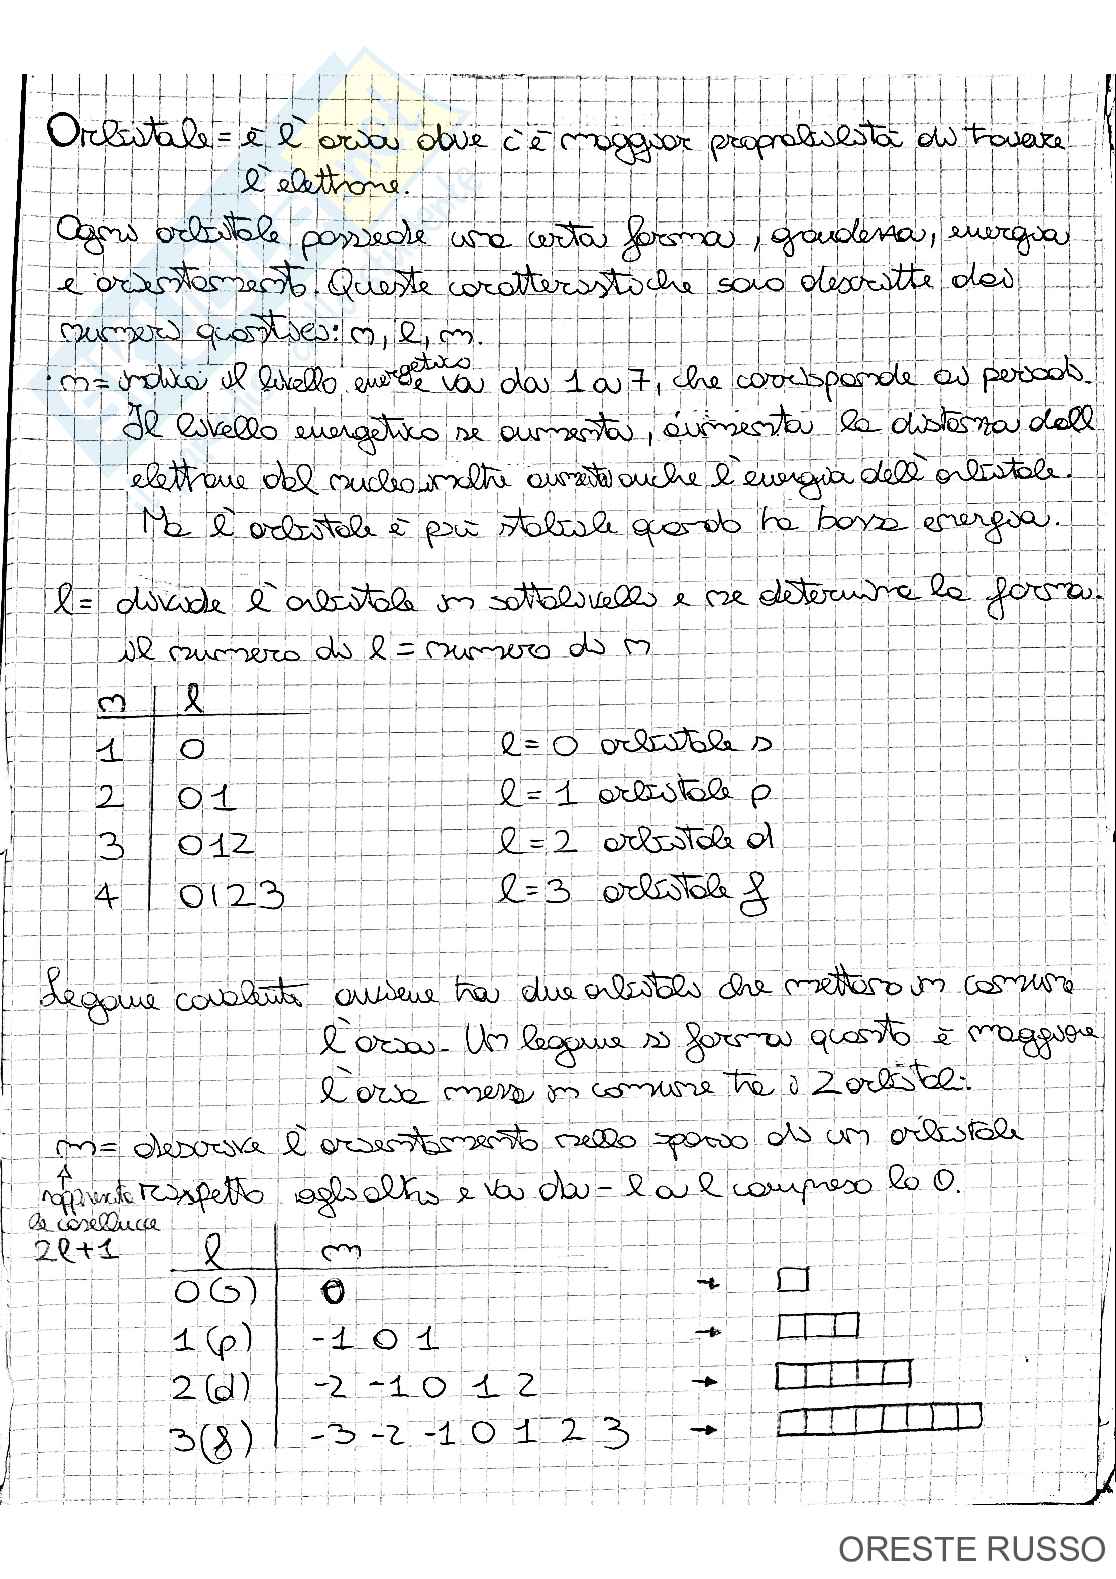 Orbitale = è l'aria dove c'è maggior proprobabilità di trovare
l'elettrone.
Ogni orbitale possiede una certa forma, grandezza, energia
e orientamento. Queste caratteristiche sono descritte dai
numeri quantici: n, l, m.
n = indica il livello energetico e va da 1 a 7, che corrisponde ai periodi.
Il livello energetico se aumenta, aumenta la distanza dell
elettrone dal nucleo inoltre aumenta anche l'energia dell'orbitale.
Ma l'orbitale è più stabile quando ha bassa energia.
l = divide l'orbitale in sottolivelli e ne determina la forma.
il numero di l = numero di n
n l
1 0 l = 0 orbitale s
2 0 1 l = 1 orbitale p
3 0 1 2 l = 2 orbitale d
4 0 1 2 3 l = 3 orbitale f
Legame covalente avviene tra due orbitali che mettono in comune
l'aria. Un legame si forma quanto è maggiore
l'aria messa in comune tra i 2 orbitali.
m = descrive l'orientamento nello spazio di un orbitale
rispetto agli altri e va da -l a l compreso lo 0.
rappresenta
le casellucce
2l+1 l m
0 (s) 0 →
1 (p) -1 0 1 →
2 (d) -2 -1 0 1 2 →
3 (f) -3 -2 -1 0 1 2 3 →
ORESTE RUSSO